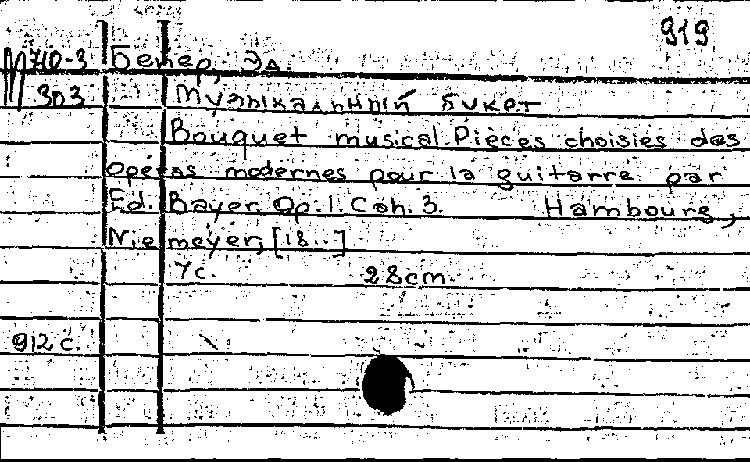 919
М 710-3 Бейер, Эд.
3р3 Музыкальный букет
Bouquet musical. Pièces choisies des
opéras modernes pour la guitarre par
Ed. Bayer. Op. 1. Cah. 3. Hambourg,
Niemeyer, [18..]
7 с. 28cm.
912 с.